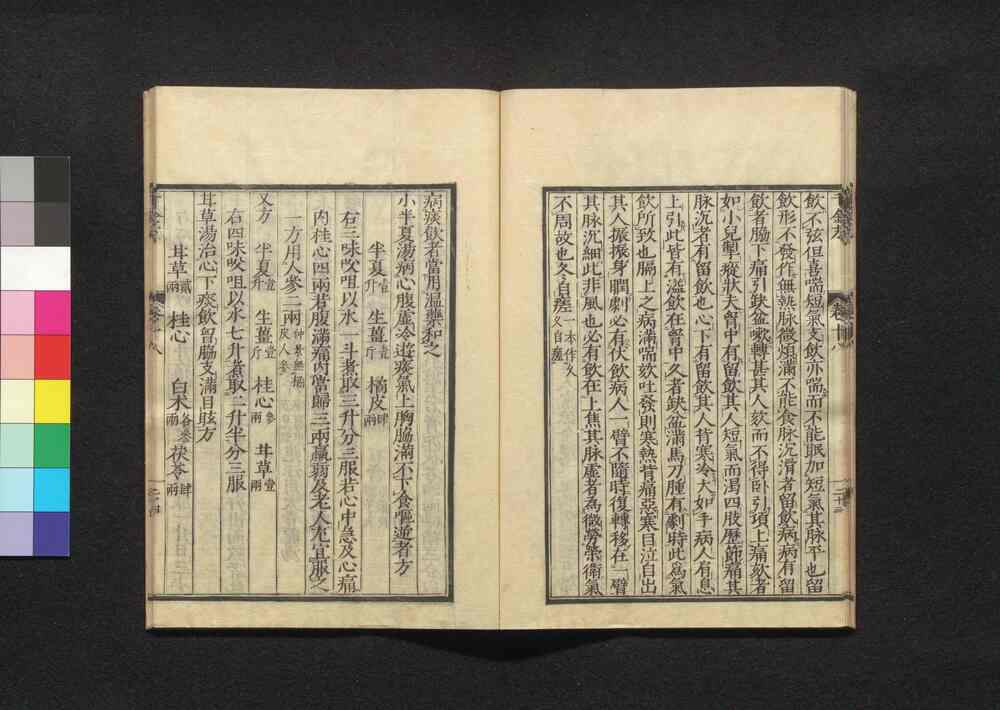 飲不弦但喜喘短氣支飲亦喘而不能眠加短氣其脉平也留
飲形不發作無熱脉微煩滿不能食脉沉滑者留飲病病有留
飲者脇下痛引鈌盆嗽轉甚其人欬而不得卧引項上痛欬者
如小兒掣瘲狀夫胷中有留飲其人短氣而渴四肢歷節痛其
脉沉者有留飲也心下有留飲其人背寒冷大如手病人有息
上引此皆有溢飲在胷中久者鈌盆滿馬刀腫有劇時此爲氣
飲所致也膈上之病滿喘欬吐發則寒熱背痛惡寒目泣自出
其人振振身瞤劇必有伏飲病人一臂不隨時復轉移在一臂
其脉沉細此非風也必有飲在上焦其脉虛者為微勞榮衛氣
不周故也久久自瘥一本作久久自瘥
病痰飲者當用温藥和之
小半夏湯病心腹虛冷遊痰氣上胸脇滿不下食嘔逆者方
半夏壹升 生薑壹斤 橘皮肆兩
右三味㕮咀以水一斗煮取三升分三服若心中急及心痛
内桂心四兩若腹滿痛内當歸三兩羸弱及老人尤宜服之
一方用人參二兩仲景無橘皮人參
又方 半夏壹升 生薑壹斤 桂心參兩 甘草壹兩
右四味㕮咀以水七升煮取二升半分三服
甘草湯治心下痰飲胷脇支滿目眩方
甘草貳兩 桂心 白术各參兩 茯苓肆兩